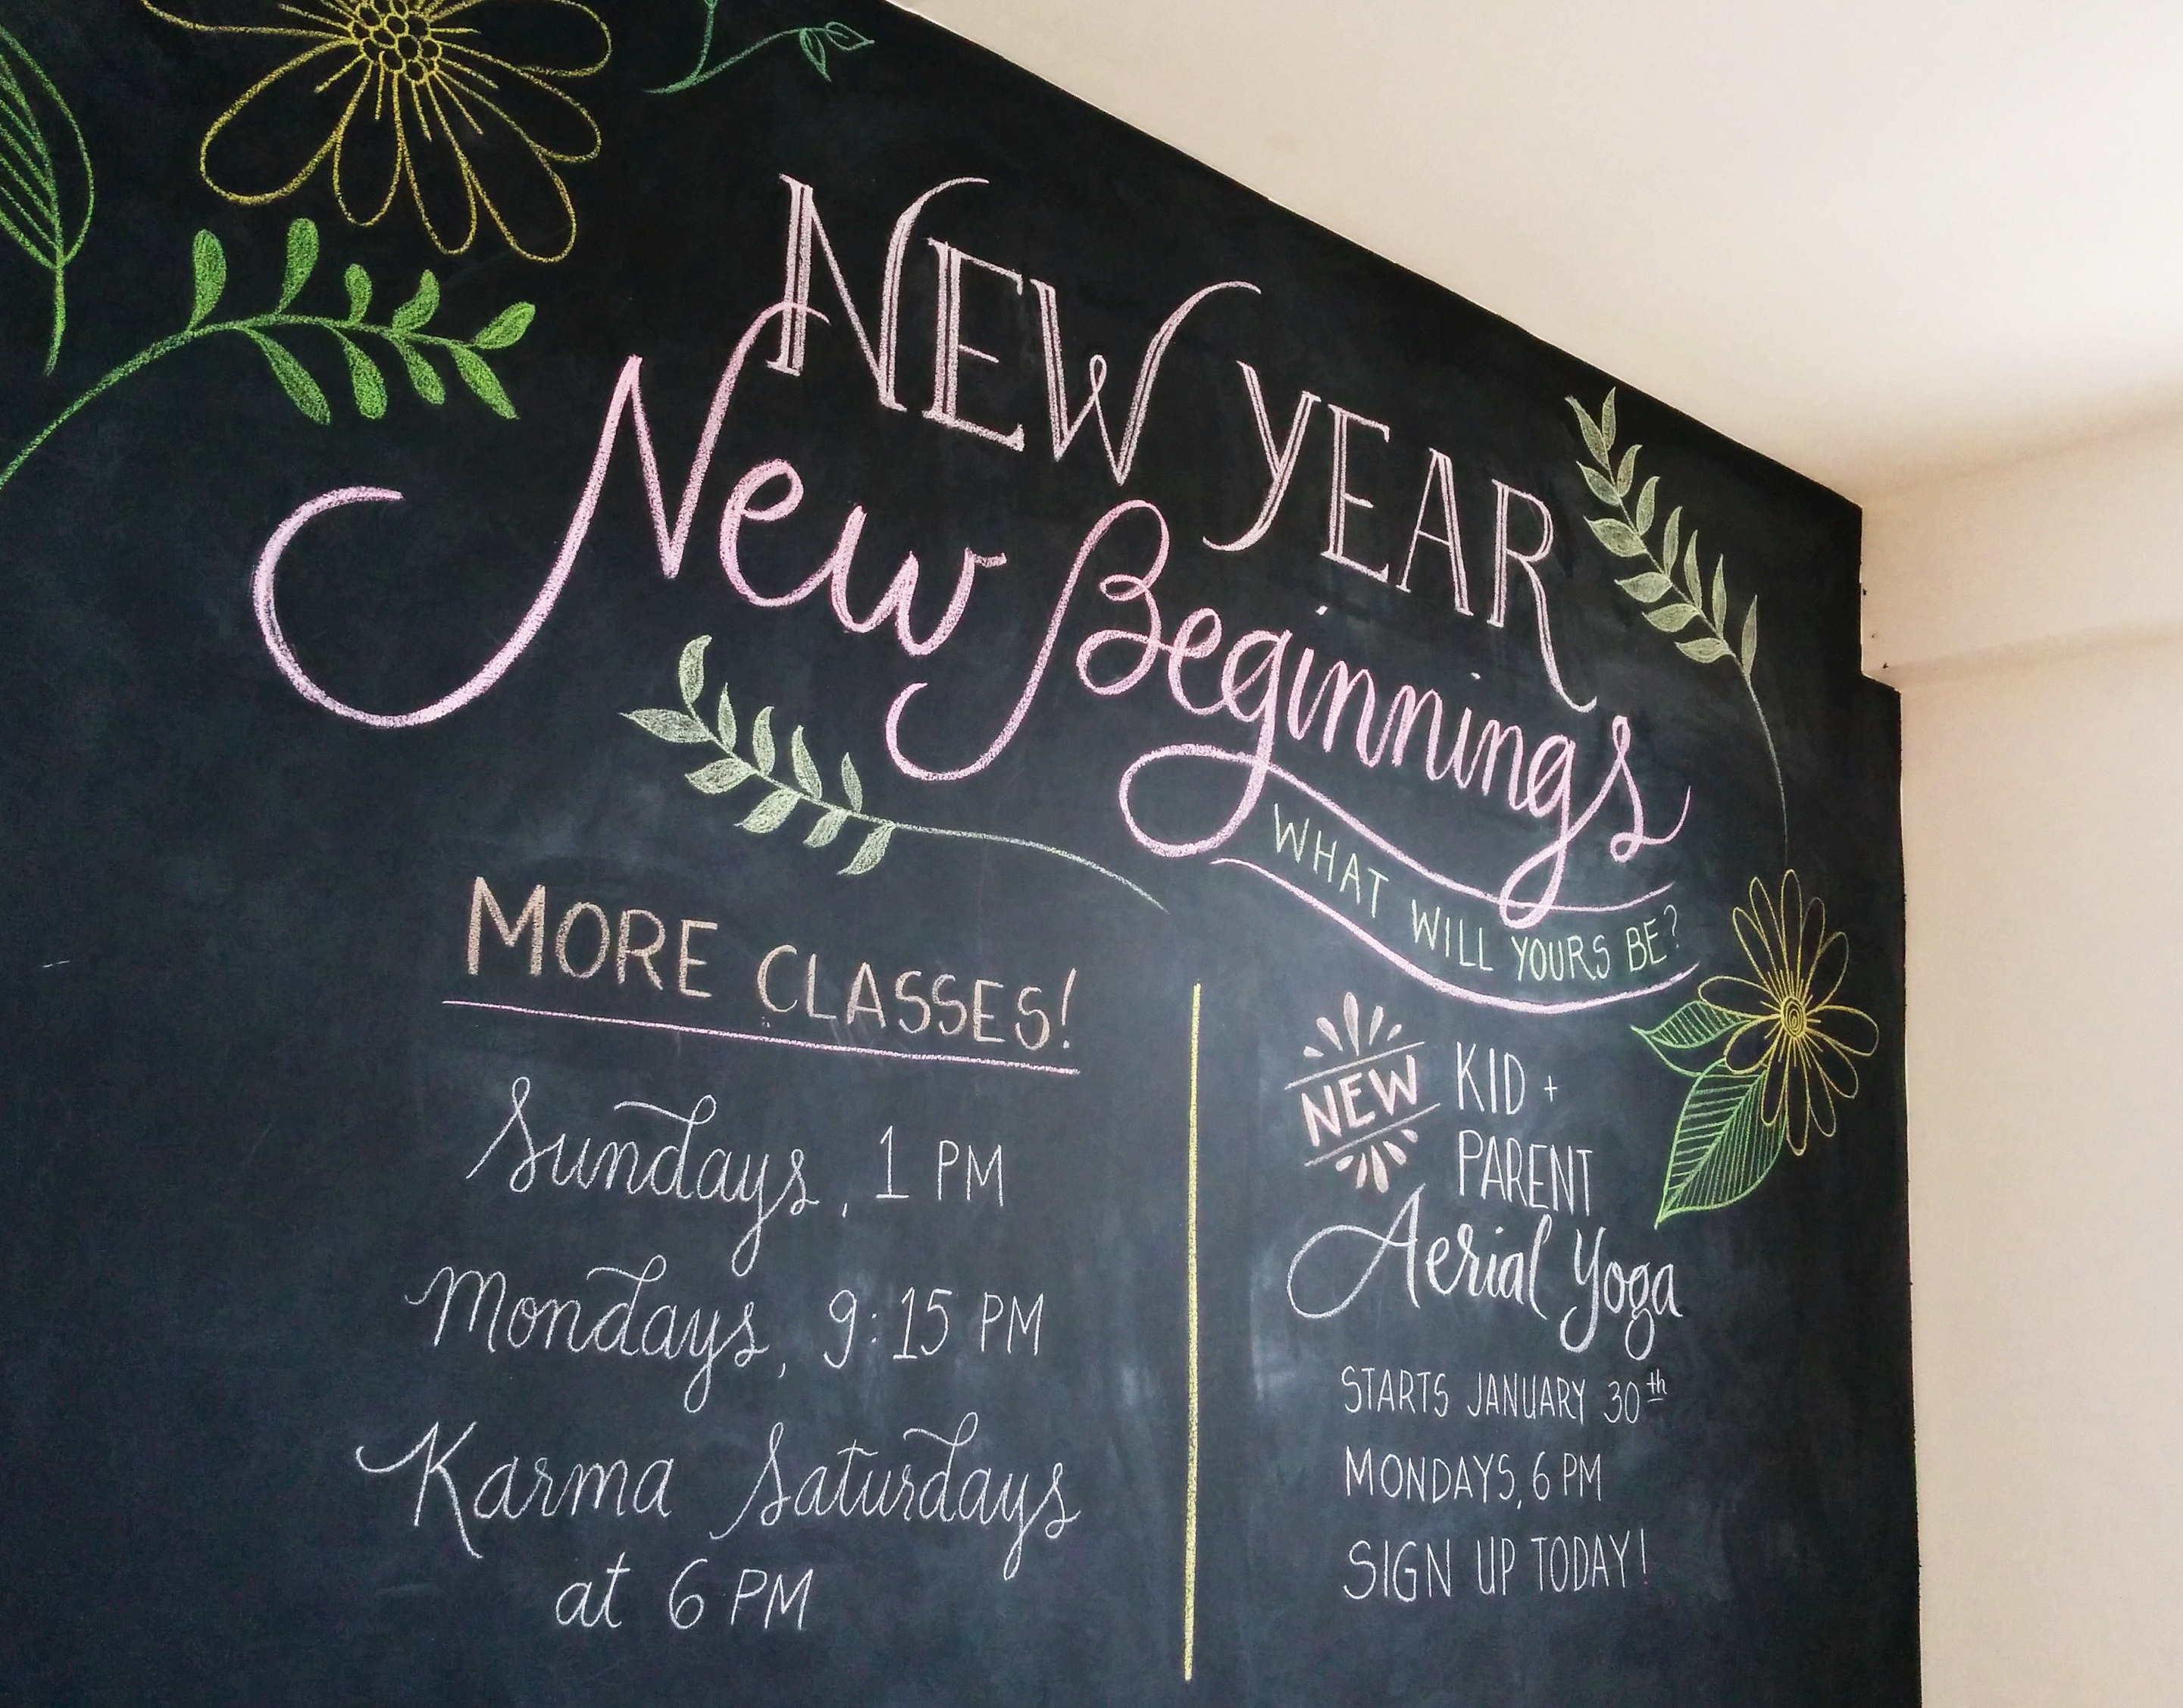 NEW YEAR
New Beginnings
WHAT WILL YOURS BE?
MORE CLASSES!
Sundays, 1 PM
Mondays, 9:15 PM
Karma Saturdays
at 6 PM
NEW
KID +
PARENT
Aerial Yoga
STARTS JANUARY 30th
MONDAYS, 6 PM
SIGN UP TODAY!